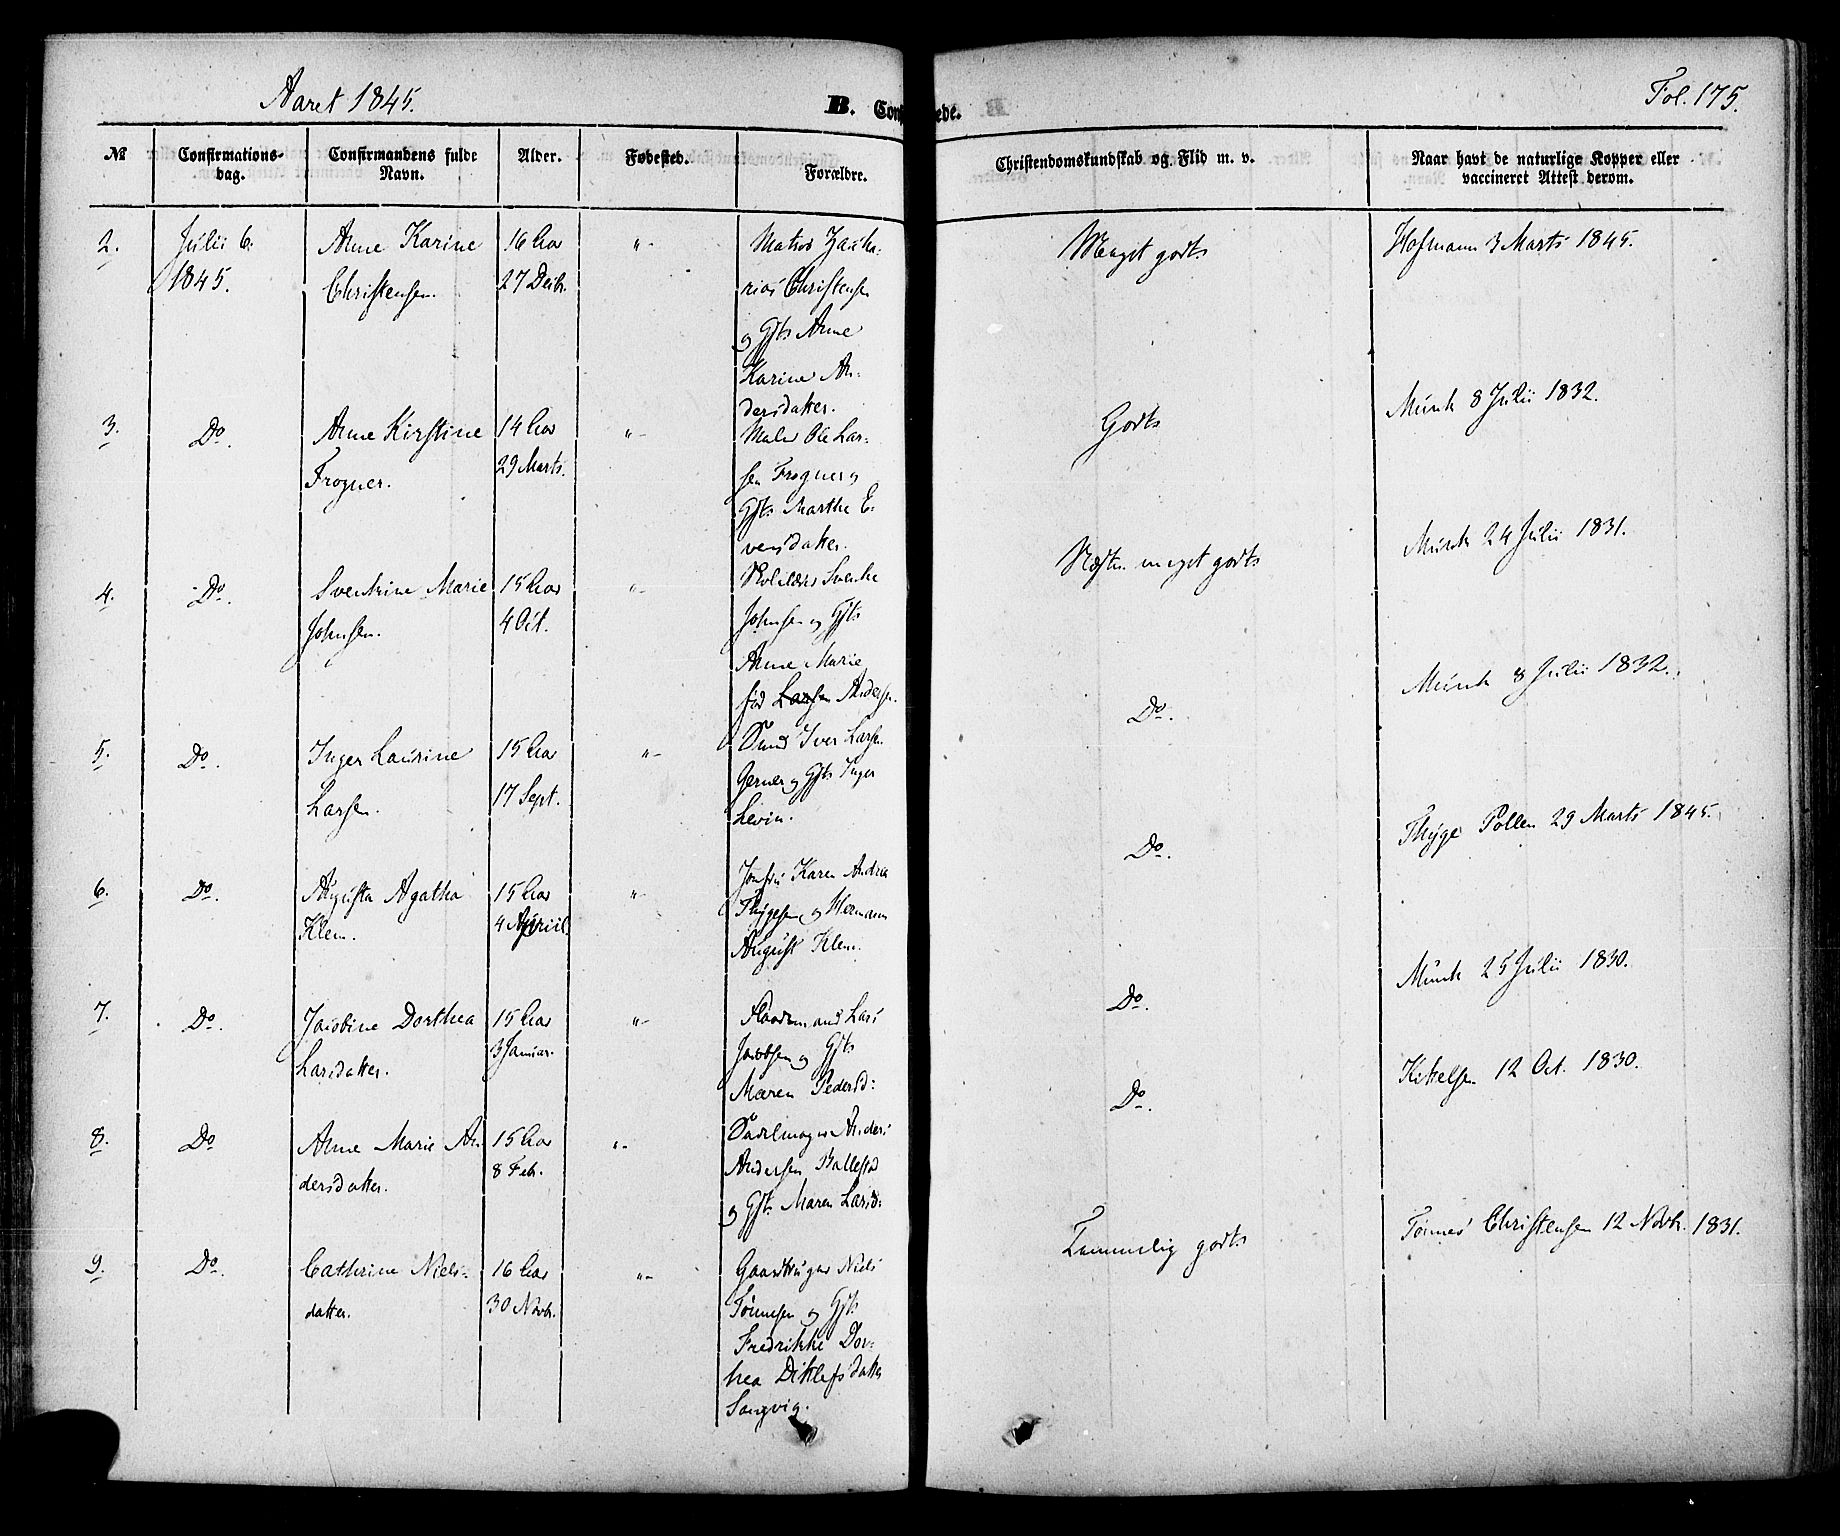 Aaret 1845.
B. Conf ede.
Fol. 175.
№
Confirmations-
dag.
Confirmandens fulde
Navn.
Alder.
Fødested.
Forældre.
Christendomskundskab og Flid m. v.
Naar havt de naturlige Kopper eller
vaccineret Attest derom.
2.
Julii 6.
1845.
Anne Karine
Christensen.
16 Aar
27 Decbr.
"-
Matros Zacha-
rias Christensen
og Gjts Anne
Karine An-
dersdatter.
Meget godt
Hofmann 3 Marts 1845.
3.
Do.
Anne Kirstine
Frogner.
14 Aar
29 Marts.
"-
Maler Ole Lar-
sen Frogner og
Gjts Marthe E-
vensdatter.
Godt
Munk 8 Julii 1832.
4.
Do.
Svenkine Marie
Johnsen.
15 Aar
4 Oct.
"-
Svenke
Johnsen og Gjts
Anne Marie
fød Larsen Andersen.
Næsten meget godt
Munk 24 Julii 1831.
5.
Do.
Inger Laurine
Larsen.
15 Aar
17 Sept.
"-
Smed Iver Larsen
Gerner og Gjts Inger
Levin.
Do.
Munk 8 Julii 1832.
6.
Do.
Augusta Agatha
Klem.
15 Aar
4 April.
"-
Jomfru Karen Andrea
Thygesen og Hermann
August Klem.
Do.
Thyge Pollen 29 Marts 1845.
7.
Do.
Jacobine Dorthea
Larsdatter.
15 Aar
3 Januar.
"-
Lars
Jacobsen og Gjts
Maren Pedersd:
Do.
Munk 25 Julii 1830.
8.
Do.
Anne Marie An-
dersdatter.
15 Aar
8 Feb.
"-
Sadelmager Anders
Andersen Ballestad
og Gjts Maren Larsd:
Do.
Kittelsen 12 Oct. 1830.
9.
Do.
Cathrine Niels-
datter.
16 Aar
30 Novbr.
"-
Gaardbruger Niels
Tönnesen og Gjts
Fredrikke Dor-
thea Ditlefsdatter
Sangvig.
Temmelig godt
Tönnes Christensen 12 Novbr. 1831.